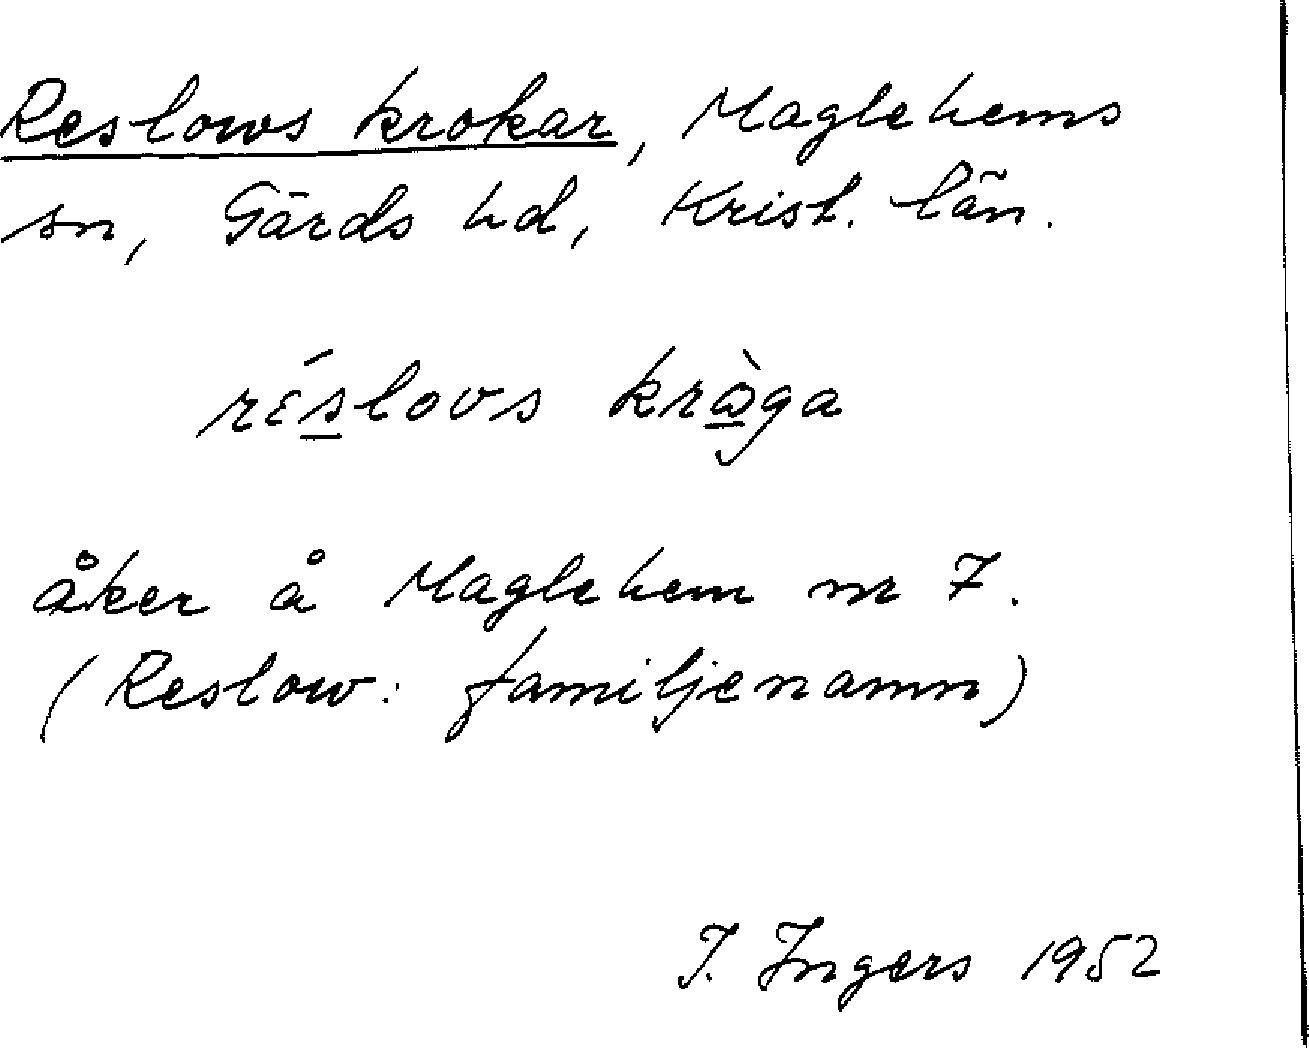 Reslows krokar, Maglehems
sn, Gärds hd, Krist. län.
rɛ́s̲lovs krò̲ga
åker å Maglehem nr 7.
(Reslow: familjenamn)
I. Ingers 1952